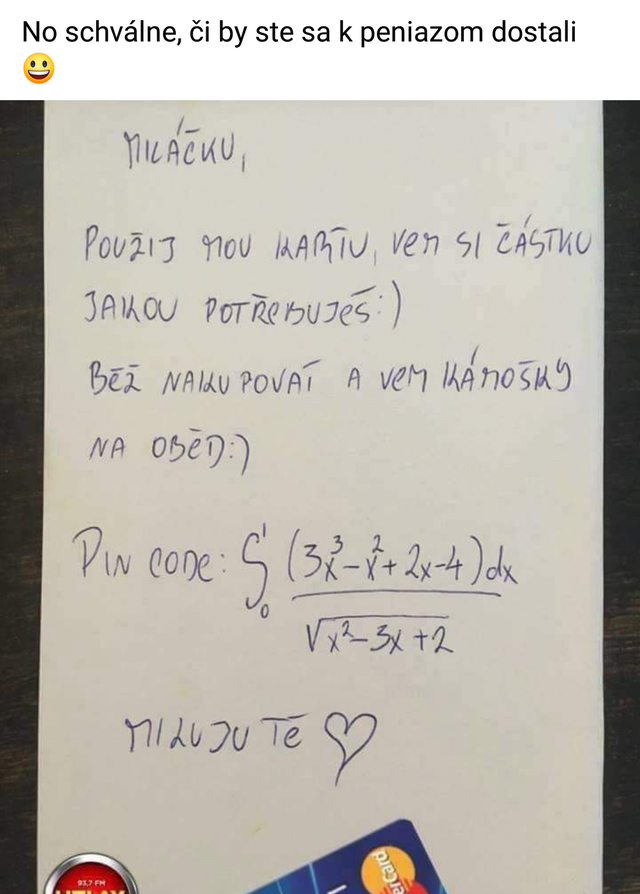 No schválne, či by ste sa k peniazom dostali
😃
MILÁČKU,
POUŽIJ MOU KARTU, VEM SI ČÁSTKU
JAKOU POTŘEBUJEŠ:)
BĚŽ NAKUPOVAT A VEM KÁMOŠKY
NA OBĚD:)
PIN CODE: ∫₀¹ (3x³-x²+2x-4)dx
√x²-3x+2
MILUJU TĚ ♡
93,7 FM
erCard